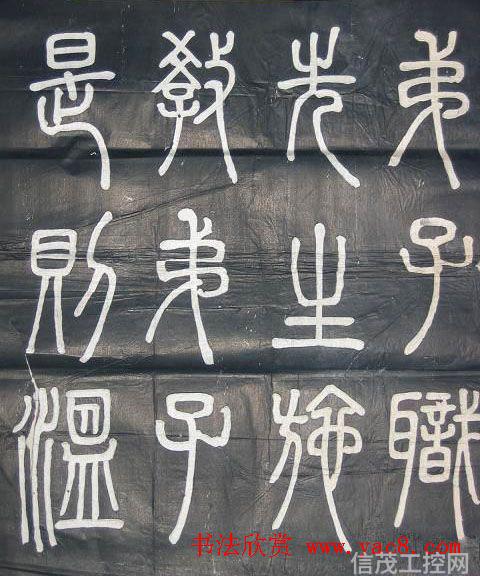 弟子職
先生施
教弟子
是則溫
书法欣赏 www.yac8.com
信茂工控网